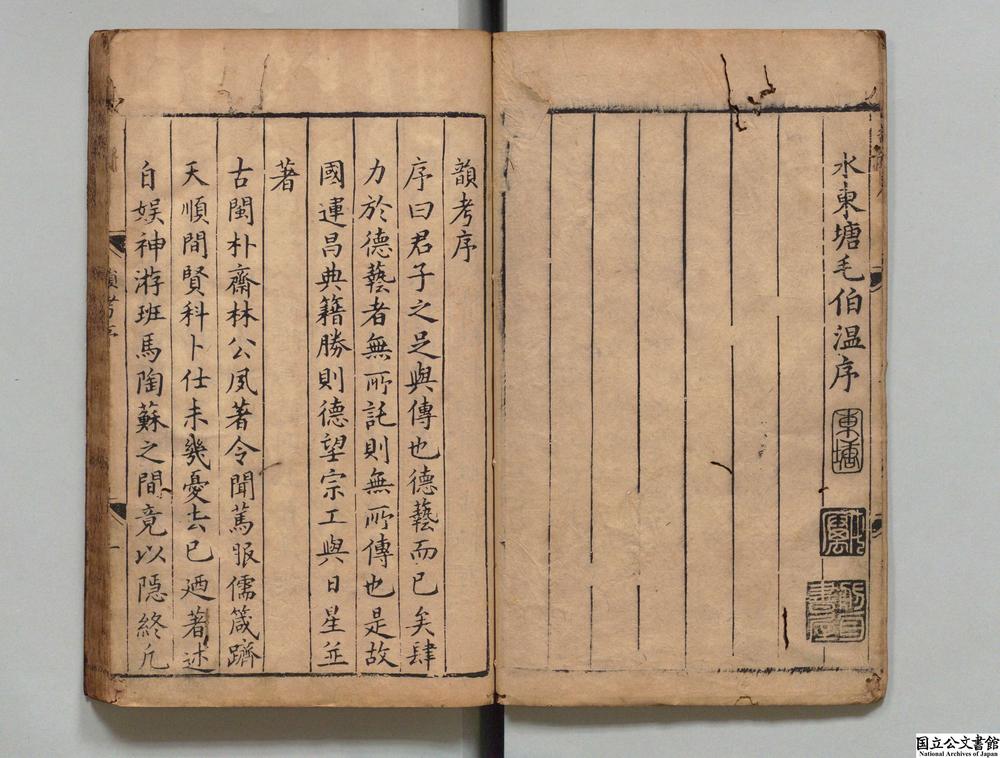 水東塘毛伯温序
東塘
韻考序
序曰君子之足與傳也德藝而已矣肆
力於德藝者無所託則無所傳也是故
國運昌典籍勝則德望宗工與日星並
著
古閩朴齋林公夙著令聞篤服儒箴躋
天順間賢科卜仕未幾憂去已迺著述
自娱神游班馬陶蘇之間竟以隱終凢
韻考序
一
国立公文書館
National Archives of Japan